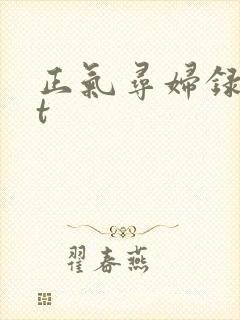 正氣尋婦録
t
翟春燕